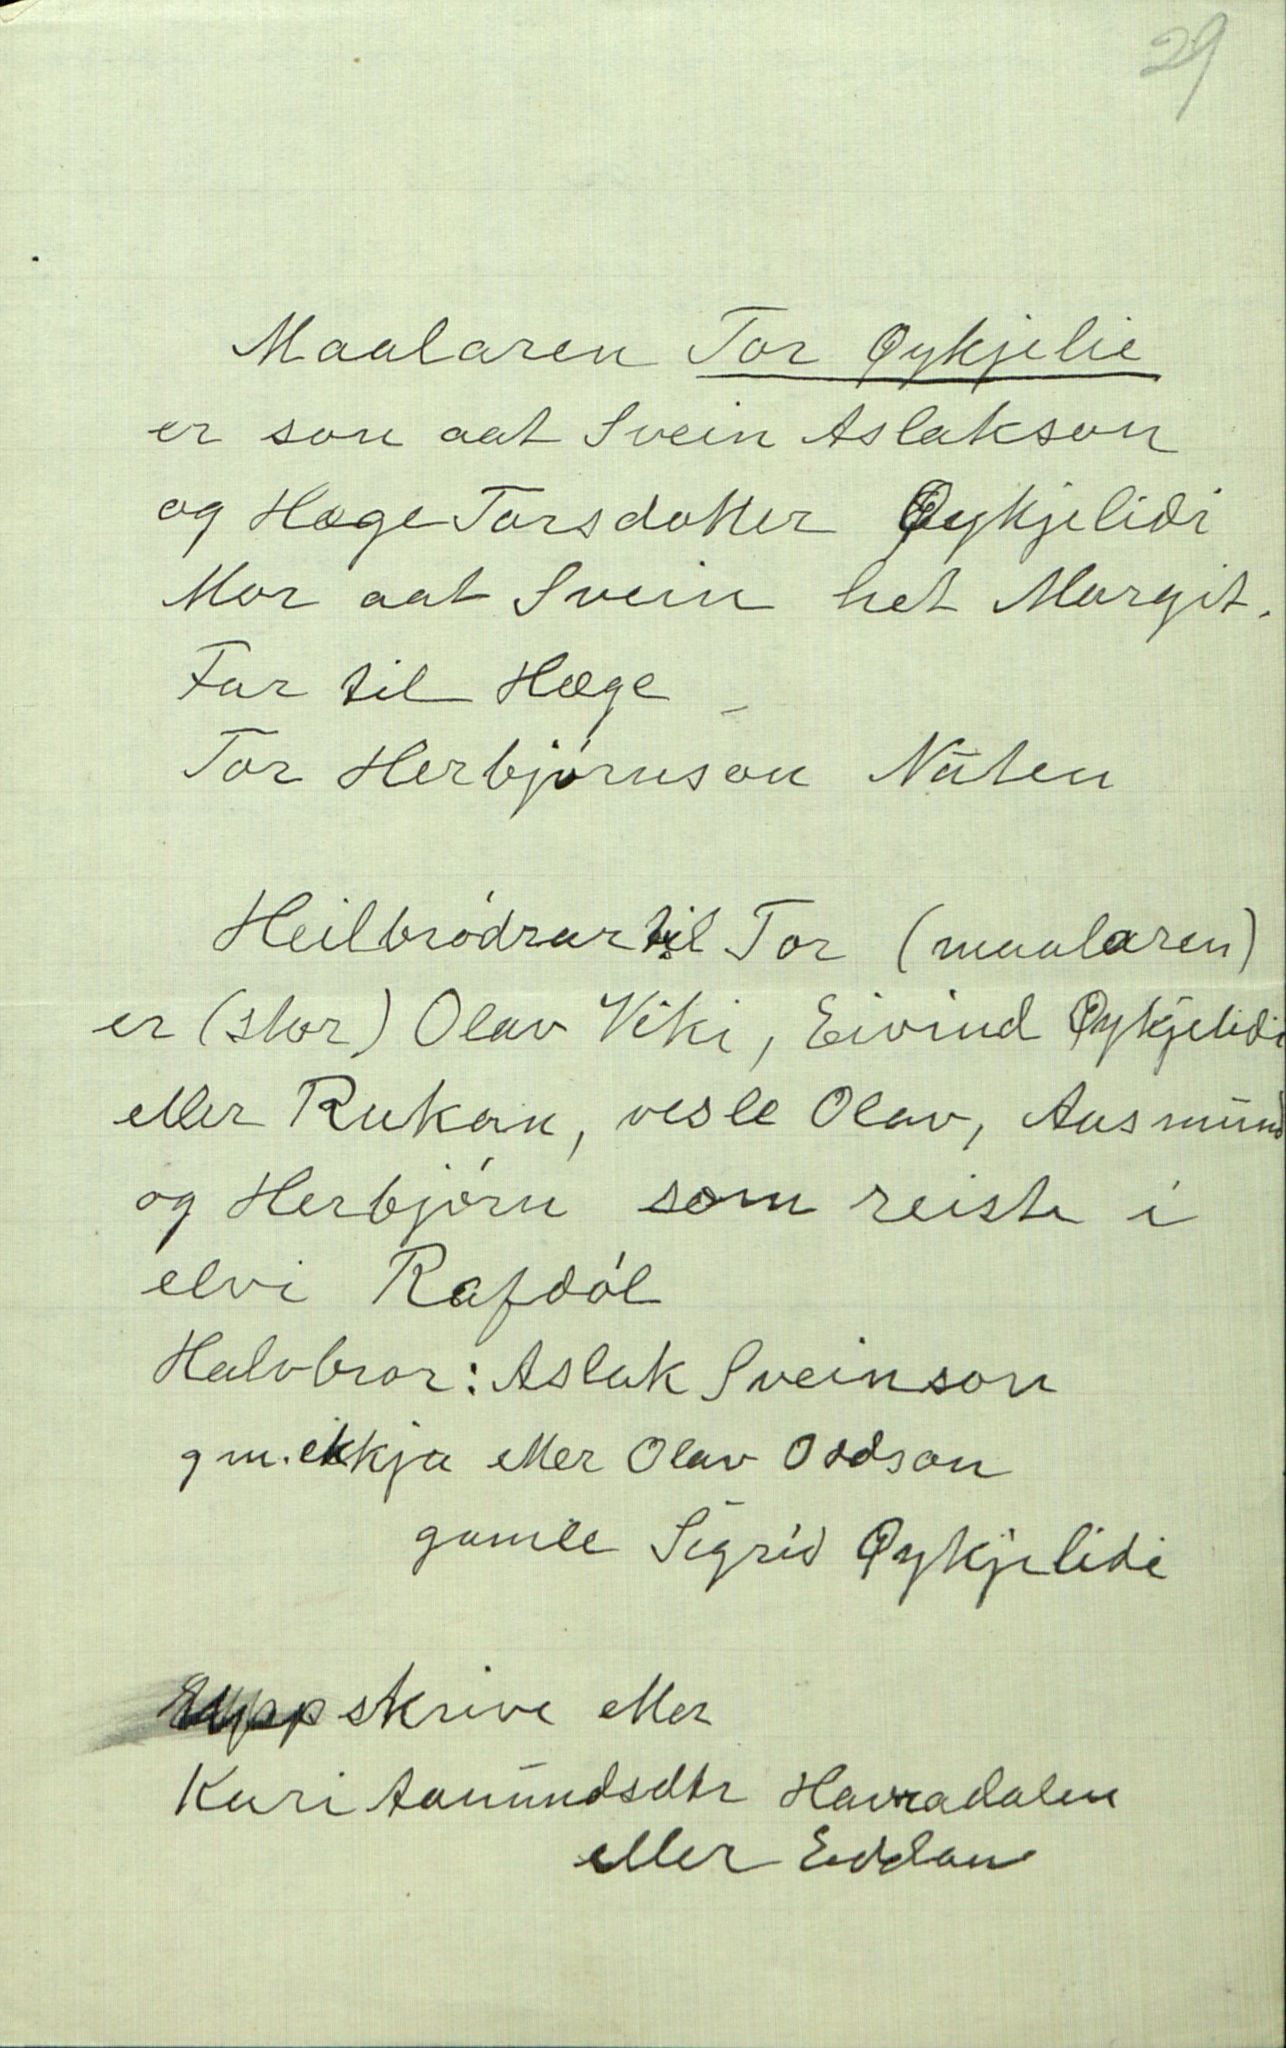 29
Maalaren Tor Øykjelie
er son aat Svein Aslakson
og Hæge Torsdotter Øykjelidi
Mor aat Svein het Margit.
Far til Hæge
Tor Herbjørnson Nūten
Heilbródrar til Tor (maalaren)
er (stor) Olav Viki, Eivind Øykjelidi
eller Rukan, vesle Olav, Aasmūnd
og Herbjórn som reiste i
elvi Rafdól
Halvbror: Aslak Sveinson
gm. ekkja etter Olav Oddson
gamle Sigrid Øykjelidi
Uppskrive etter
Kari Aamūndsdtr Havradalen
eller Eddan